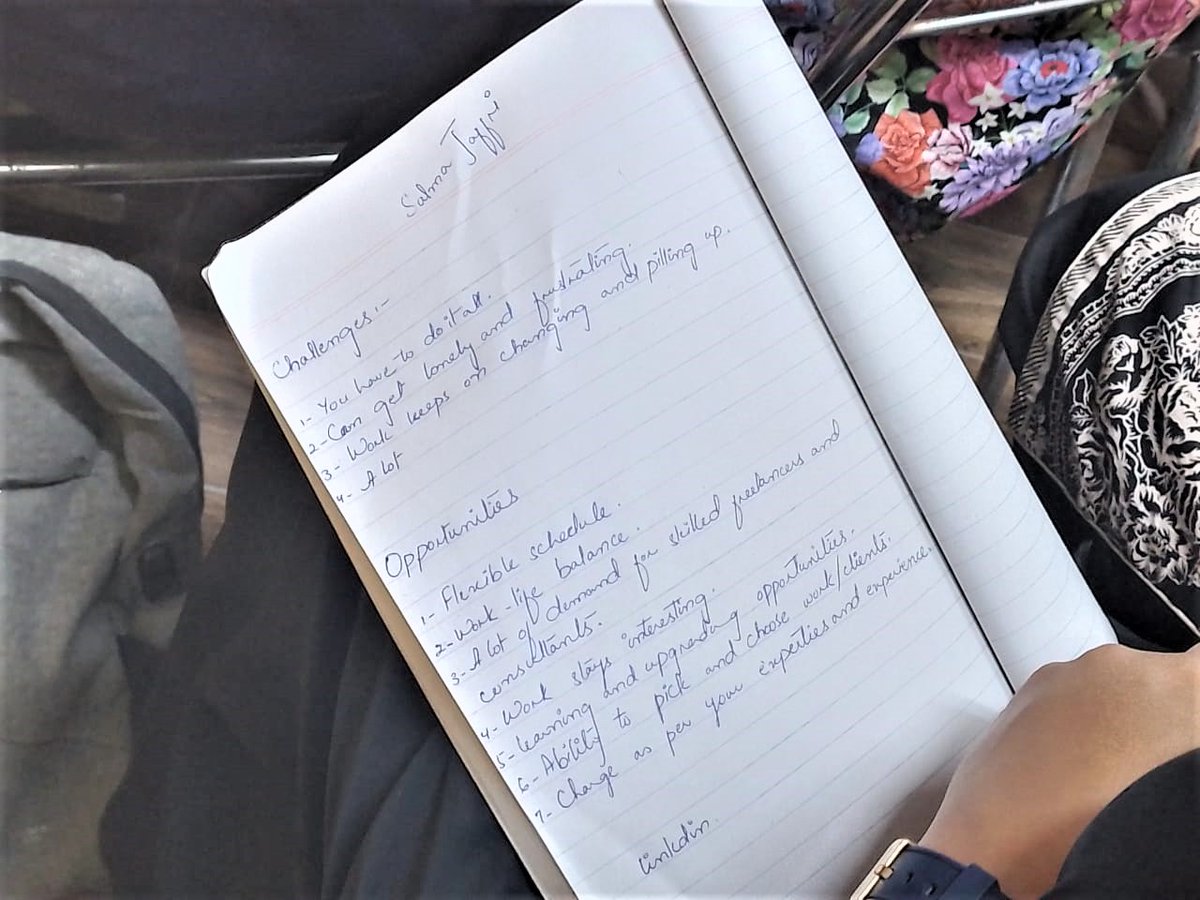 Salma Jaffri
Challenges:-
1- You have to do it all.
2- Can get lonely and frustrating.
3- Work keeps on changing and pilling up.
4- A lot
Opportunities
1- Flexible schedule.
2- Work-life balance.
3- A lot of demand for skilled freelancers and
consultants.
4- Work stays interesting.
5- Learning and upgrading opportunities.
6- Ability to pick and choose work/clients.
7- Charge as per your experties and experience.
linkdin.